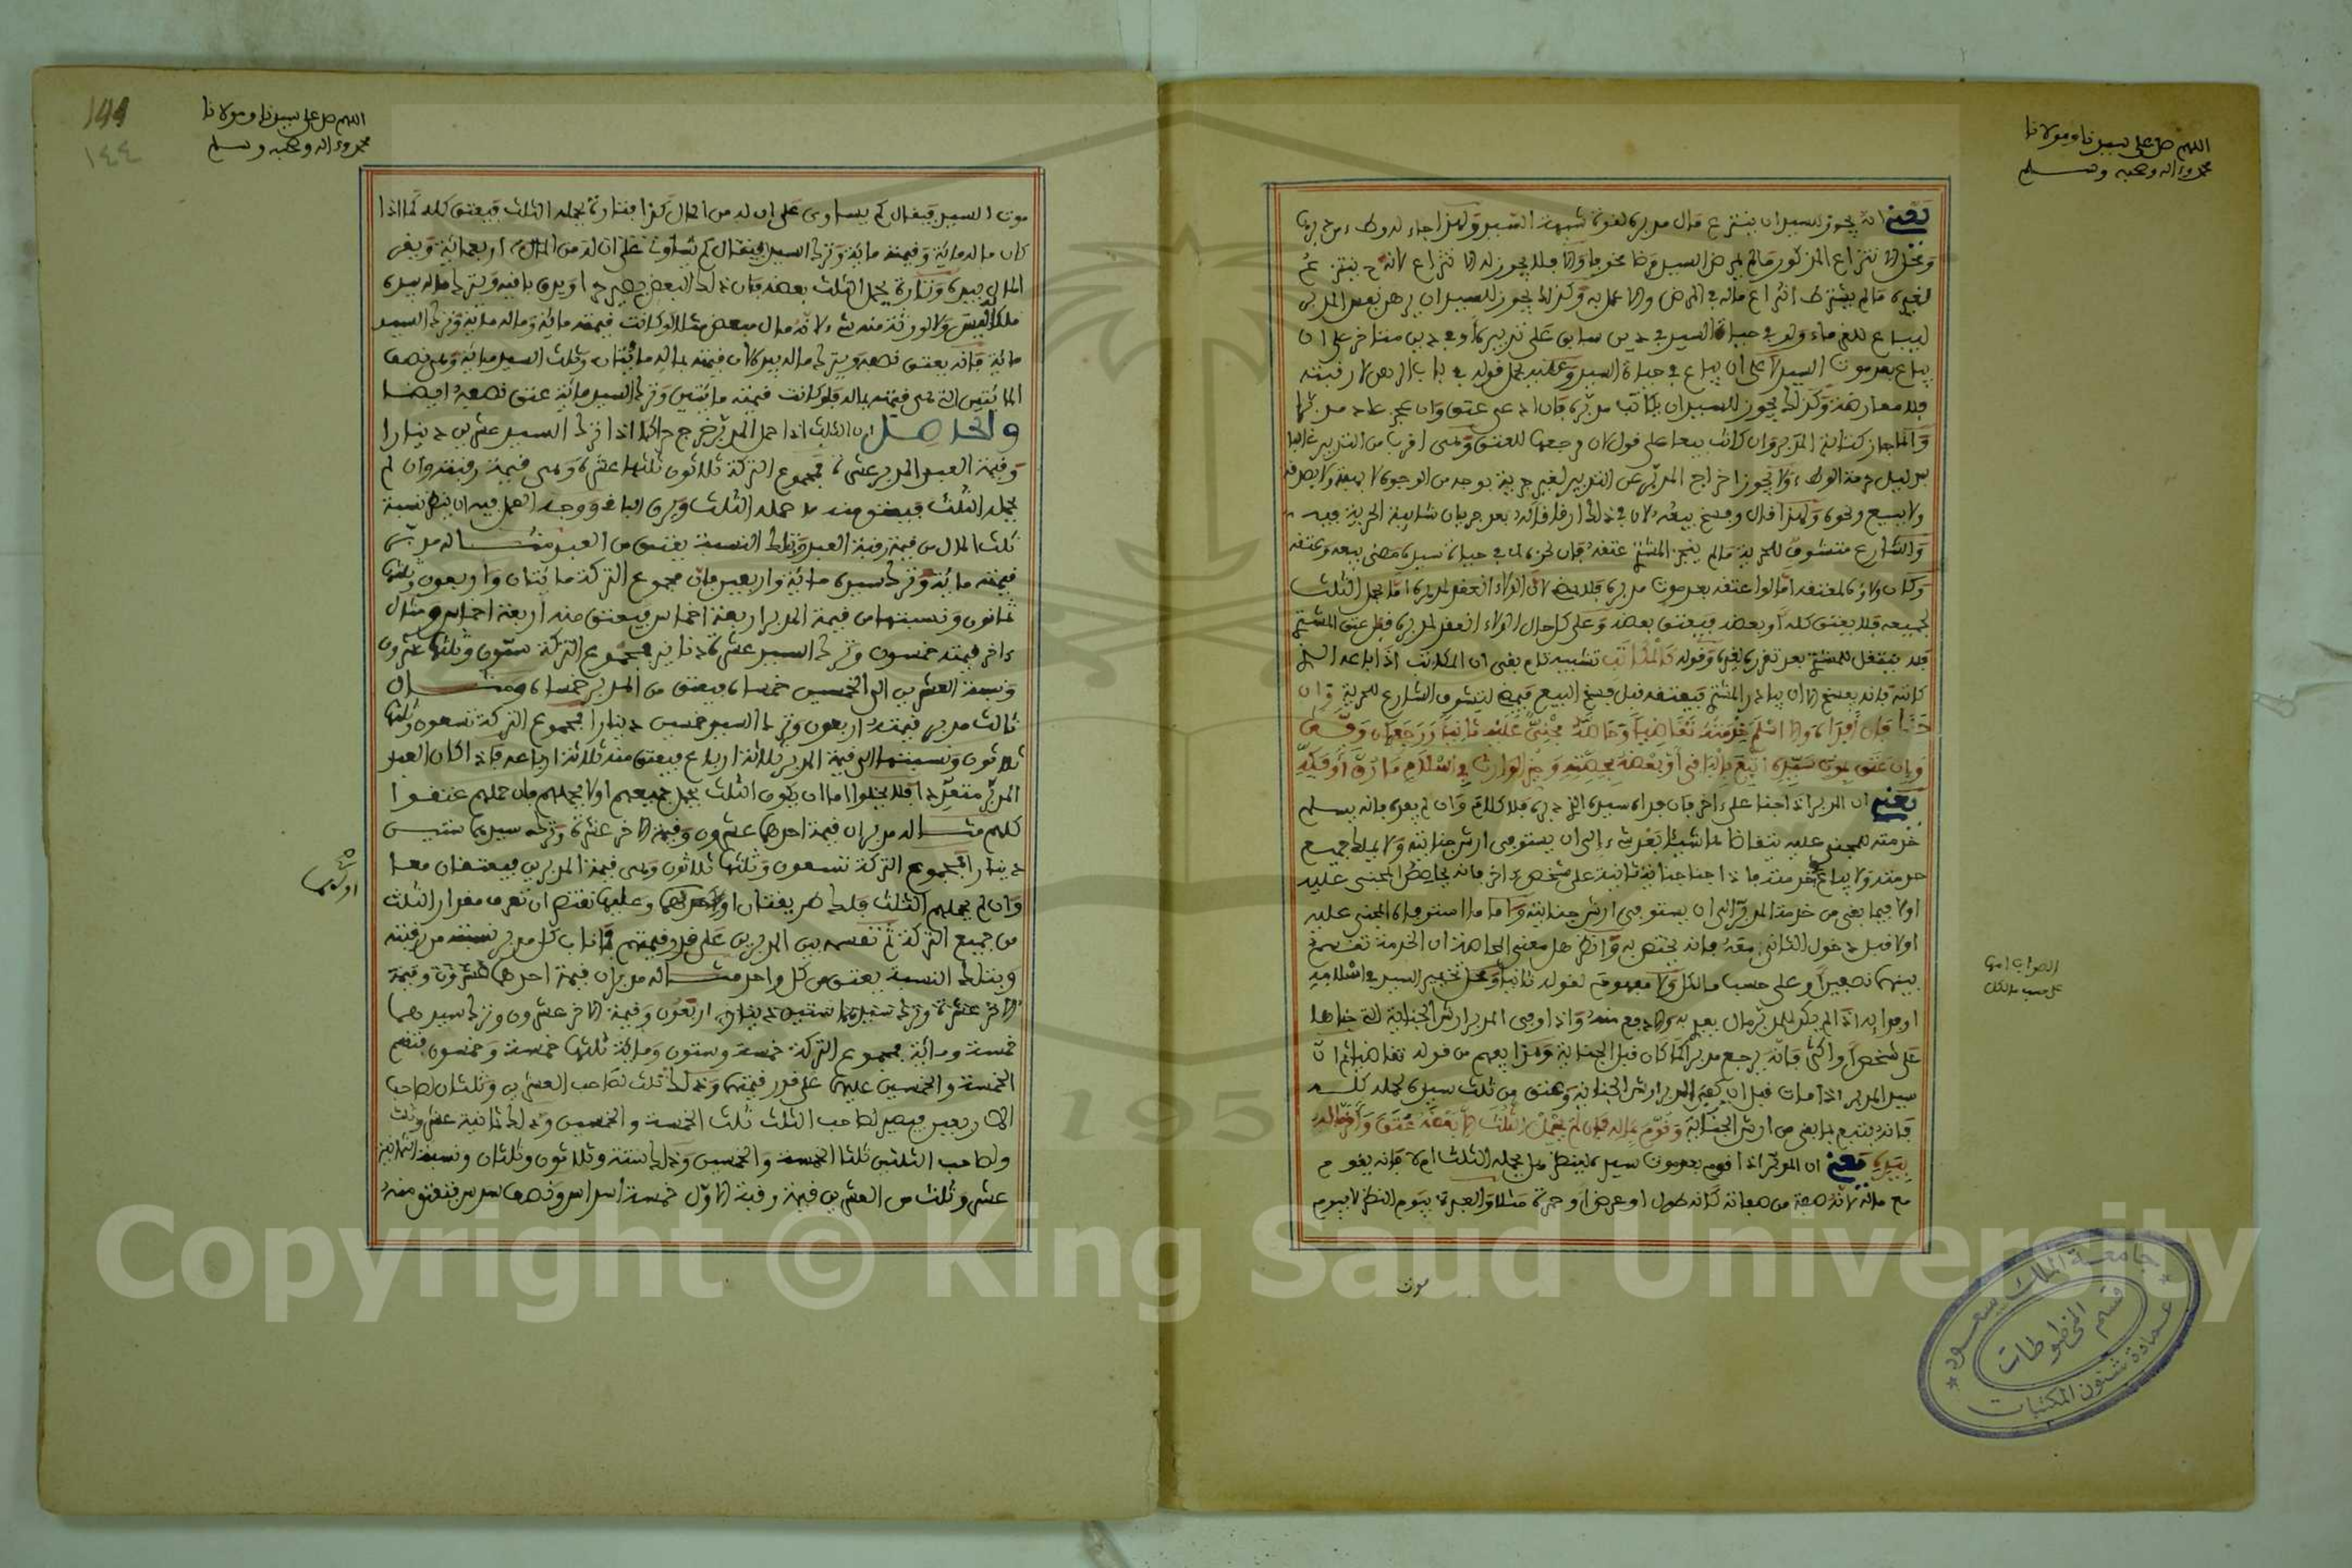 اللهم صل على سيدنا ومولانا
محمد وءاله وصحبه وسلم
يعني انه يجوز للسيد ان ينتزع مال مدبره لقوة شبهة السيد ولهذا جاء له وطء من دبرها
ومحل الانتزاع المذكور مالم يمرض السيد مرضا مخوفا والا فلا يجوز له الانتزاع لانه ح ينتزع
لغيره مالم يشترط انتزاع ماله في المرض والا عمل به وكذلك يجوز للسيد ان يرهن نفس المدبر
ليباع للغرماء ولو في حياة السيد في دين سابق على تدبيره او في دين متاخر على ان
يباع بعد موت السيد لا على ان يباع في حياة السيد وعليه يحمل قوله في باب الرهن لا رقبته
فلا معارضة وكذلك يجوز للسيد ان يكاتب مدبره فان ادى عتق وان عجز عاد مدبرا
وانما جاز كتابة المدبر وان كانت بيعا على قول لان مرجعها للعتق وهي اقرب من التدبير غالبا
بدليل حرمة الوطء ولا يجوز اخراج المدبر عن التدبير لغير حرية بوجه من الوجوه لا بهبة ولا بصدقة
ولا ببيع ونحوه ولهذا قال وفسخ بيعه لان في ذلك ارقاقا له بعد جريان شائبة الحرية فيه
والشارع متشوف للحرية مالم ينجز المشتري عتقه فان نجزه لما في حياة سيده مضى بيعه وعتقه
وكان ولاؤه لمعتقه اما لو اعتقه بعد موت مدبره فلا يمضي لان الولاء انعقد لمدبره اما بحمل الثلث
لجميعه فلا يعتق كله او بعضه فيعتق بعضه وعلى كل حال الولاء انعقد لمدبره قبل عتق المشتري
فلا ينتقل للمشتري بعد تقرره لغيره وقوله كالمكاتب تشبيه تام يعني ان المكاتب اذا باعه الذي
كاتبه فانه يفسخ الا ان يبادر المشتري فيعتقه قبل فسخ البيع فيمضي لتشوف الشارع للحرية وان
جنى فان فداه والا اسلم خدمته تقاضيا وحاصه مجني عليه ثانيا ورجع ان وفى
وان عتق بموت سيده اتبع بالباقي او بعضه بحصته وخير الوارث في اسلام ما رق او فكه
يعني ان المدبر اذا جنى على ءاخر فان فداه سيده الذي دبره فلا كلام وان لم يفده فانه يسلم
خدمته للمجني عليه يتقاضاها شيئا بعد شيء الى ان يستوفي ارش جنايته ولا يملك جميع
خدمته ولا يباع خدمته فاذا جنى جناية ثانية على شخص ءاخر فانه يحاصص المجني عليه
اولا فيما بقي من خدمة المدبر الى ان يستوفي ارش جنايته واما ما استوفاه المجني عليه
اولا قبل دخول الثاني معه فانه يختص به وانظر هل معنى المحاصة ان الخدمة تقسم
بينهما نصفين او على حسب مالكل ولا مفهوم لقوله ثانيا ومحل تخيير السيد في اسلامه
او فدائه اذا لم يكن للمدبر مال يفي به والا دفع منه واذا وفى المدبر ارش الجناية التي جناها
على شخص او اكثر فانه يرجع مدبرا كما كان قبل الجناية وهذا يفهم من قوله تقاضيا ثم ان
سيد المدبر اذا مات قبل ان يوفي المدبر ارش الجناية وعتق من ثلث سيده لحمله كله
فانه يتبع بما بقي من ارش الجناية وقوم بماله فان لم يحمل الثلث الا بعضه عتق واقر ماله
بيده يعني ان المدبر اذا قوم بعد موت سيده لينظر هل يحمله الثلث ام لا فانه يقوم
مع ماله لانه صفة من صفاته كانه طول او عرض او حمرة مثلا والعبرة بيوم النظر لا بيوم
موت
الصواب انها
على حسب مالكل
جامعة الملك سعود
قسم المخطوطات
عمادة شئون المكتبات
١٤٤
اللهم صل على سيدنا ومولانا
محمد وءاله وصحبه وسلم
موت السيد فيقال كم يساوي على ان له من المال كذا فتارة يحمله الثلث فيعتق كله كما اذا
كان ماله مائة وقيمته مائة وترك السيد فيقال كم يساوي على ان له من المال اربعمائة ويقر
المال بيده وتارة يحمل الثلث بعضه فان ذلك البعض يصير حرا ويرق باقيه ويترك ماله بيده
ملكا ليس ولا لورثته منه شيء لانه مال مبعض مثلا لو كانت قيمته مائة وماله مائة وترك السيد
مائة فانه يعتق نصفه ويترك ماله بيده لان قيمته بماله مائتان وثلث السيد مائة وهي نصف
المائتين التي هي قيمته بماله فلو كانت قيمته مائتين وترك السيد مائة عتق نصفه ايضا
والحاصل ان الثلث اذا حمل المدبر خرج حرا كما اذا ترك السيد عشرين دينارا
وقيمة العبد المدبر عشرة فمجموع التركة ثلاثون ثلثها عشرة وهي قيمة رقبته وان لم
يحمله الثلث فيعتق منه ما حمله الثلث ويرق الباقي ووجه العمل فيه ان ينظر نسبة
ثلث المال من قيمة رقبة العبد وبتلك النسبة يعتق من العبد مثاله مدبر
قيمته مائة وترك سيده مائة واربعين فان مجموع التركة مائتان واربعون وثلثها
ثمانون ونسبتها من قيمة المدبر اربعة اخماس فيعتق منه اربعة اخماسه ومثال
ءاخر قيمته خمسون وترك السيد عشرة دنانير فمجموع التركة ستون وثلثها عشرون
ونسبة العشرين الى الخمسين خمساه فيعتق من المدبر خمساه ومثال
ثالث مدبر قيمته اربعون وترك السيد خمسين دينارا فمجموع التركة تسعون وثلثها
ثلاثون ونسبتها الى قيمة المدبر ثلاثة ارباع فيعتق منه ثلاثة ارباعه فاذا كان العبد
المدبر متعددا فلا يخلوا اما ان يكون الثلث يحمل جميعهم اولا يحملهم فان حملهم عتقوا
كلهم مثاله مدبران قيمة احدهما عشرون وقيمة الاخر عشرة وترك سيدهما ستين
دينارا فمجموع التركة تسعون وثلثها ثلاثون وهي قيمة المدبرين فيعتقان معا
وان لم يحملهم الثلث فلك طريقتان اولاهما وعليها نقتصر ان تعرف مقدار الثلث
من جميع التركة ثم تقسمه بين المدبرين على قدر قيمتهم فما ناب كل مدبر نسبته من رقبته
وبتلك النسبة يعتق من كل واحد مثاله مدبران قيمة احدهما وقيمة
الاخر اربعون وقيمة الاخر عشرون وترك سيدهما
خمسة ومائة فمجموع التركة خمسة وستون ومائة ثلثها خمسة وخمسون فتقسم
الخمسة والخمسين عليهما على قدر قيمتهما وذلك ثلث لصاحب العشرين وثلثان لصاحب
الاربعين فيصير لصاحب الثلث ثلث الخمسة والخمسين وذلك ثمانية عشر وثلث
ولصاحب الثلثين ثلثا الخمسة والخمسين وذلك ستة وثلاثون وثلثان ونسبة الثمانية
عشر وثلث من العشرين قيمة رقبة الاول خمسة اسداس ونصف سدس فيعتق منه